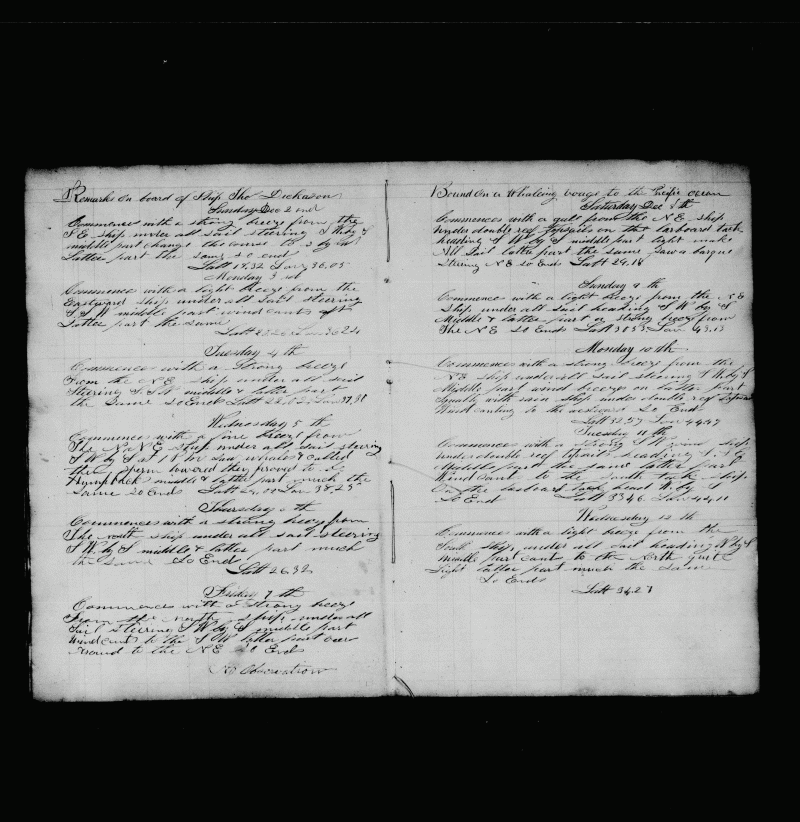 Remarks On board of Ship Tho Dickason
Sunday Dec 2 ond
Commences with a strong breeze from the
S E ship under all sail steering S W by S
middle part change the course to S by W
Latter part the same so end
Latt 19.32 Lon 36.05
Monday 3 rd
Commence with a light breeze from the
Eastward ship under all sail steering
S S W middle part wind cants aft
Latter part the same
Latt
Tuesday 4 th
Commences with a Strong breeze
From the N E ship under all sail
Steering S S W middle & latter part
the Same So End Latt
Wednesday 5 th
Commences with a fine breeze from
The N N E ship under all sail steering
S W by S at 1 P M saw whales & called
them sperm lowered they proved to be
Humpback middle & latter part much the
Same So Ends Latt Lon 38.25
Thursday 6 th
Commences with a strong breeze from
The north ship under all sail steering
S W by S middle & latter part much
the same So End
Latt 26.32
Friday 7 th
Commences with a strong breeze
From the north ship under all
Sail steering S W by S middle part
Wind cants to the S W latter part veers
Around to the N E So Ends
No Observation
Bound On a Whaling voage to the Pacific ocean
Saturday Dec 8 th
Commences with a gale from the N E ship
Under double reef topsails on the larboard tack
heading S W by S middle part light make
All Sail latter part the same saw a barque
Steering N E So Ends Latt 29.18
Sunday 9 th
Commence with a light breeze from the N E
Ship under all sail heading S W by S
Middle & latter part a strong breeze from
The N E So Ends Latt 30 53 Lon 43.13
Monday 10 th
Commences with a strong breeze from the
N E ship under all sail steering S W by S
Middle part wind breezes on latter part
Squally with rain ship under double reef Topsails
Wind canting to the westward So End
Latt 32.57 Lon 44.47
Tuesday 11 th
Commences with a strong S W wind ship
under double reef topsails heading
Middle part the same latter part
Wind cants to the south tack ship
On the larboard tack head W by S
So End Latt 33 46 Lon 44,11
Wednesday 12 th
Commences with a light breeze from the
South ship under all sail heading W by S
middle part cants to the North quite
Light latter part much the same
So Ends
Latt 34.27